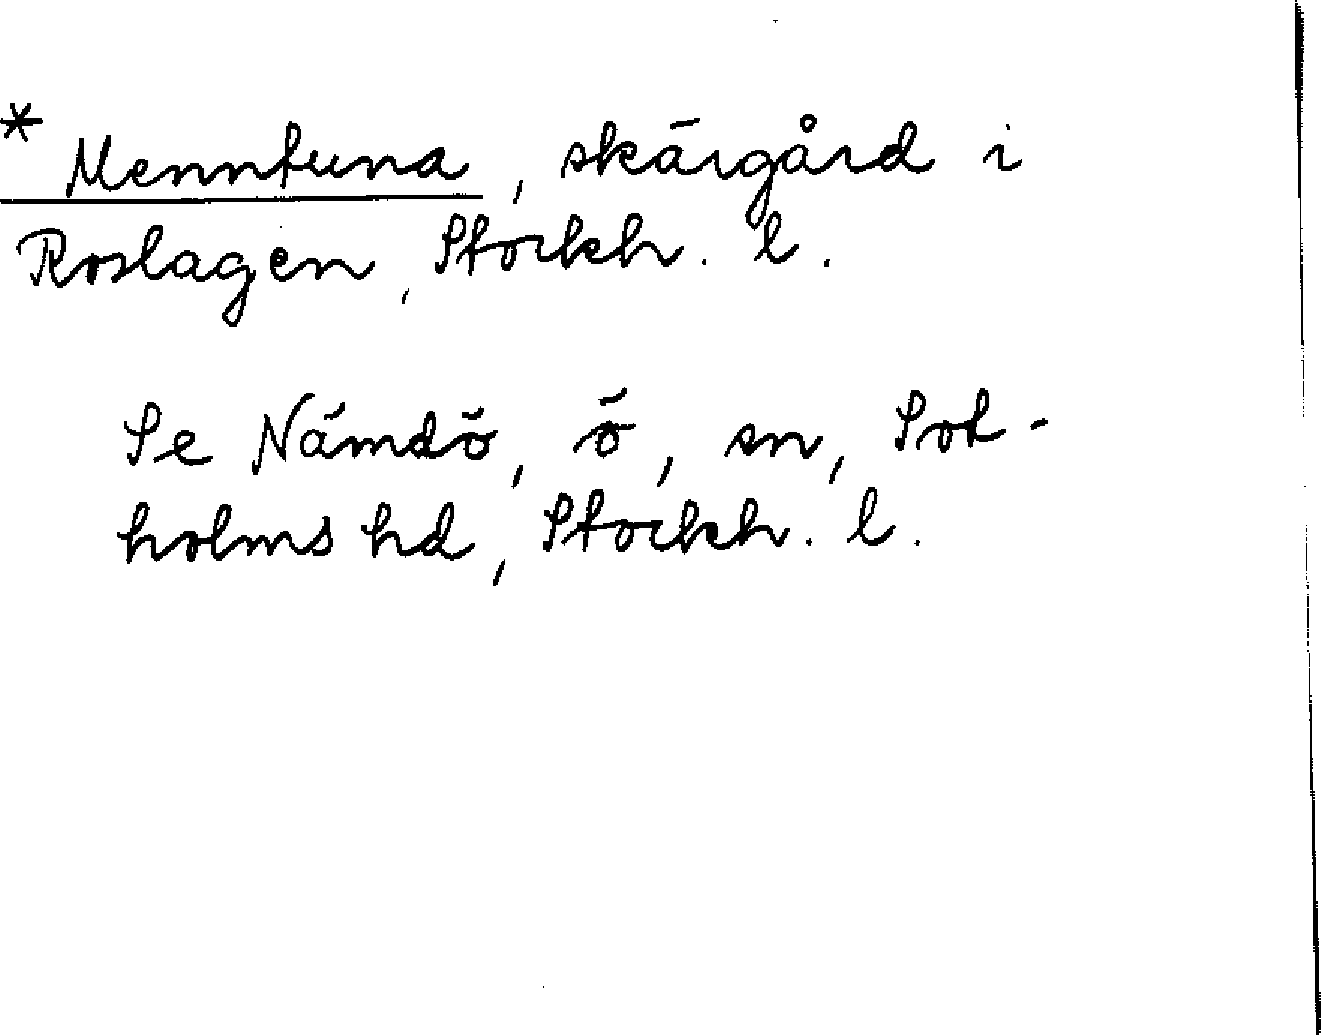 * Menntuna, skärgård i
Roslagen, Stockh. l.
Se Nämdö, ö, sn, Sot-
holms hd, Stockh. l.